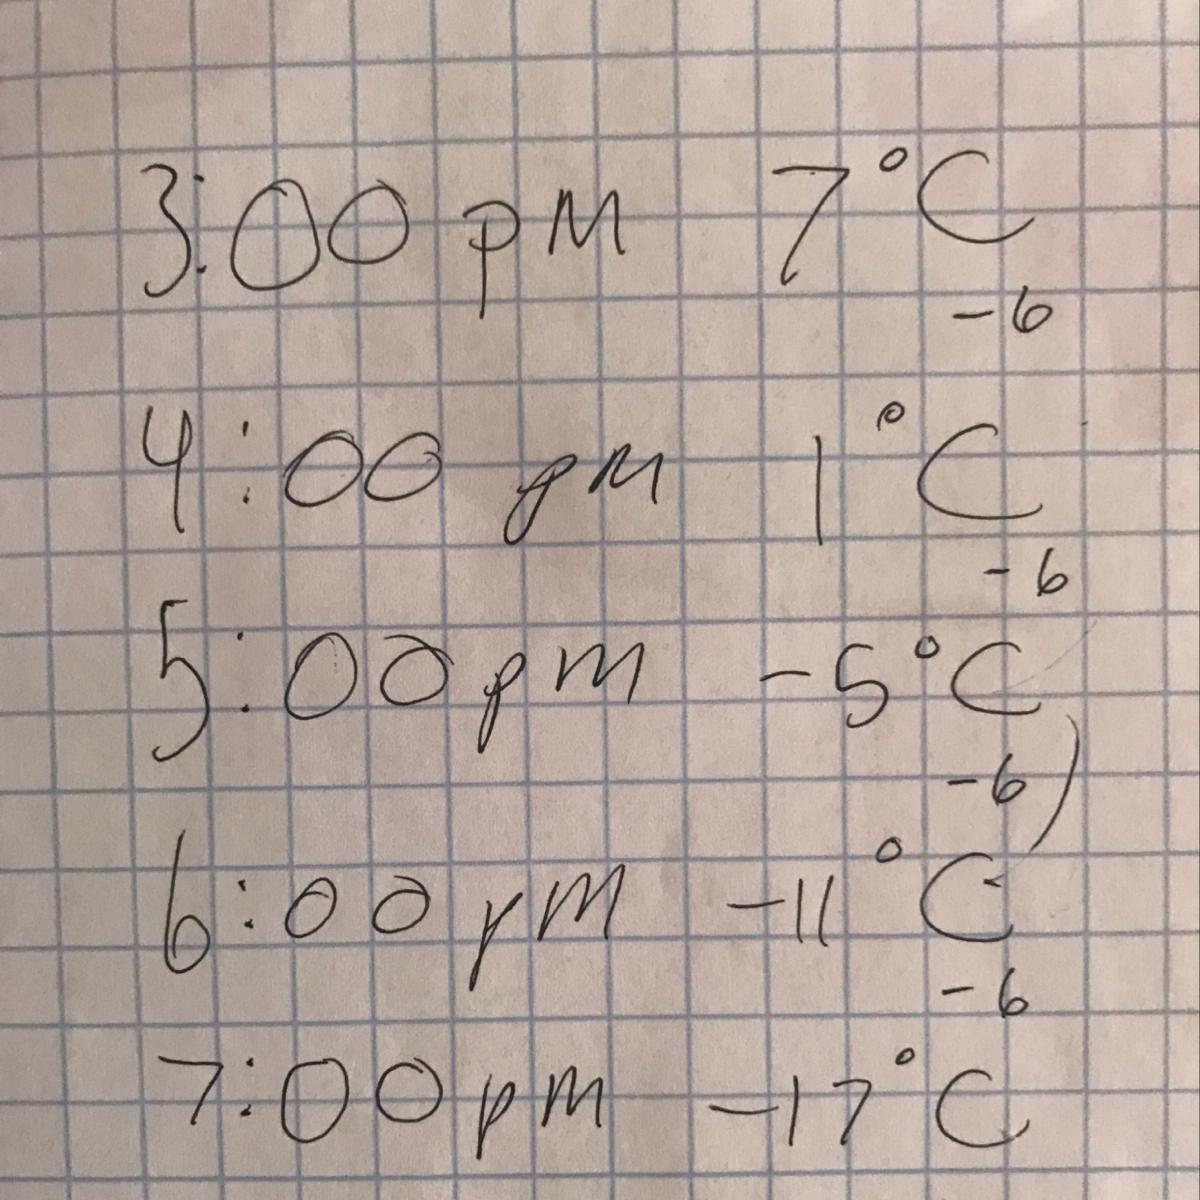 3:00 pM 7°C
-6
4:00 pM 1°C
-6
5:00 pm -5°C
-6
6:00 pM -11°C
-6
7:00 pm -17°C